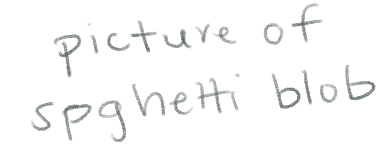 picture of
spghetti blob